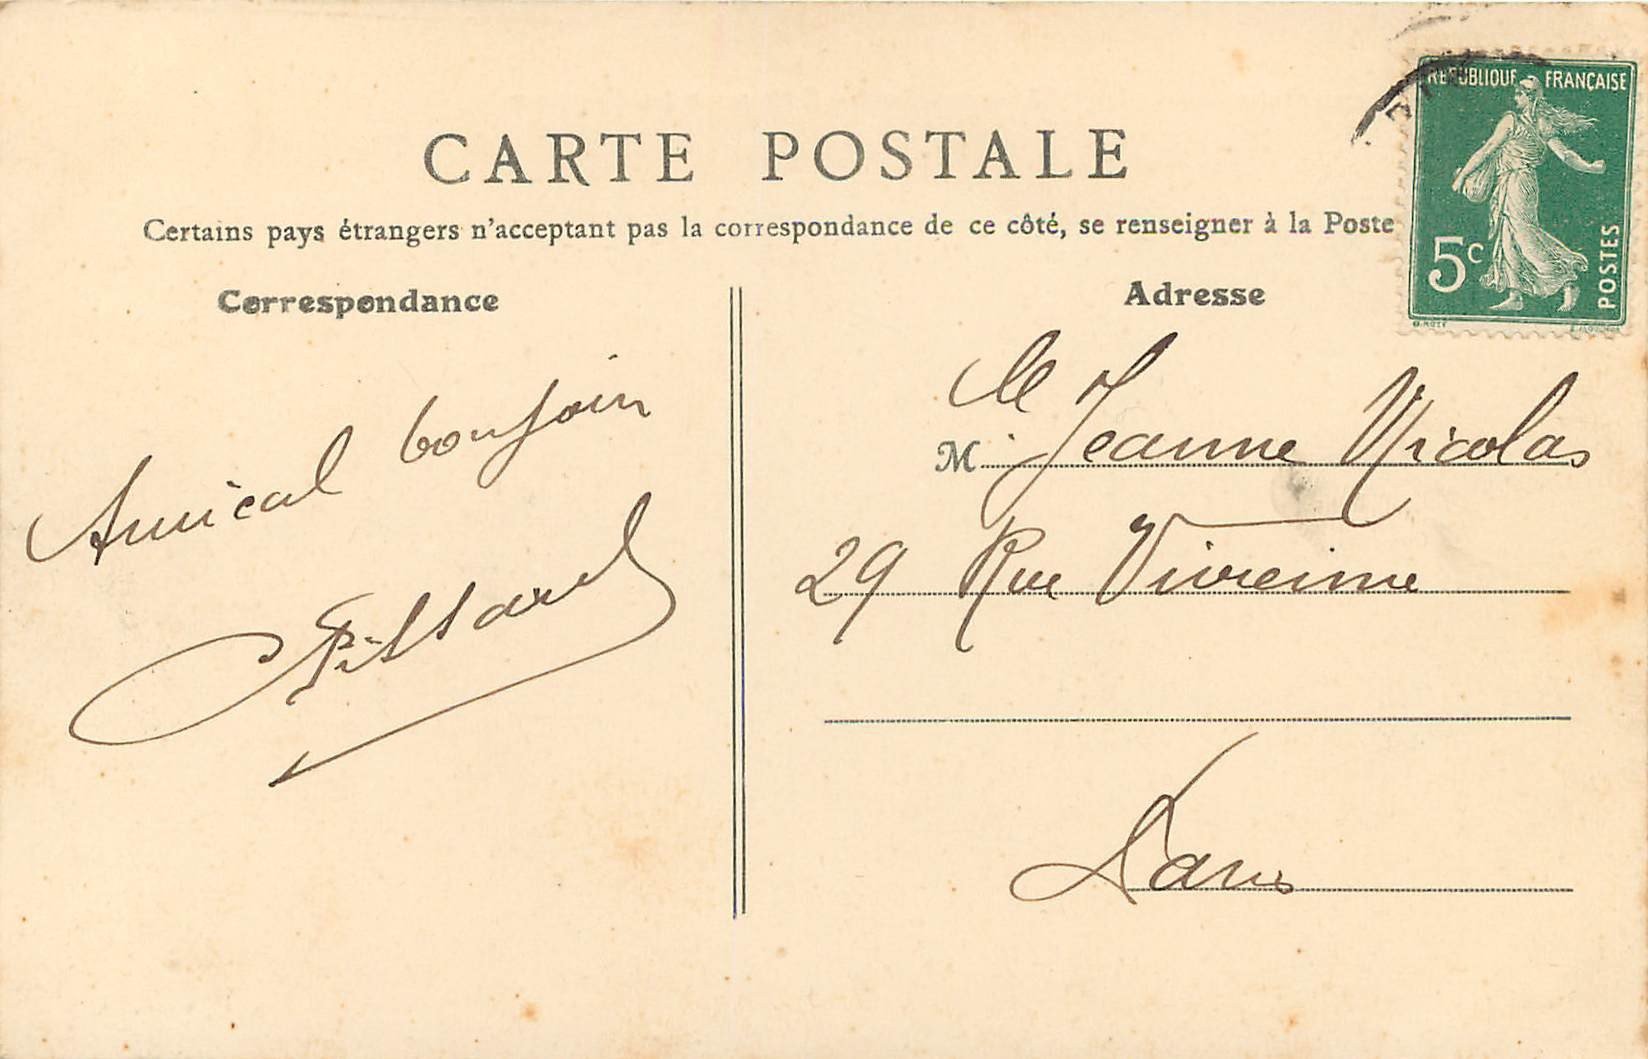 CARTE POSTALE
Certains pays étrangers n'acceptant pas la correspondance de ce côté, se renseigner à la Poste
RÉPUBLIQUE FRANÇAISE
5c
POSTES
Correspondance
Adresse
Amical bonjour
M. lle Jeanne Nicolas
29 Rue Vivienne
Paris